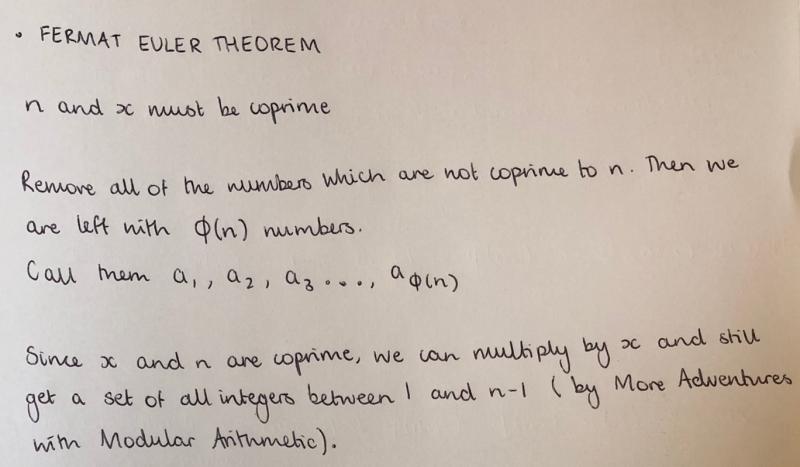 • FERMAT EULER THEOREM
n and x must be coprime
Remove all of the numbers which are not coprime to n. Then we
are left with ϕ(n) numbers.
Call them a₁, a₂, a₃ ..., a_ϕ(n)
Since x and n are coprime, we can multiply by x and still
get a set of all integers between 1 and n-1 (by More Adventures
with Modular Arithmetic).